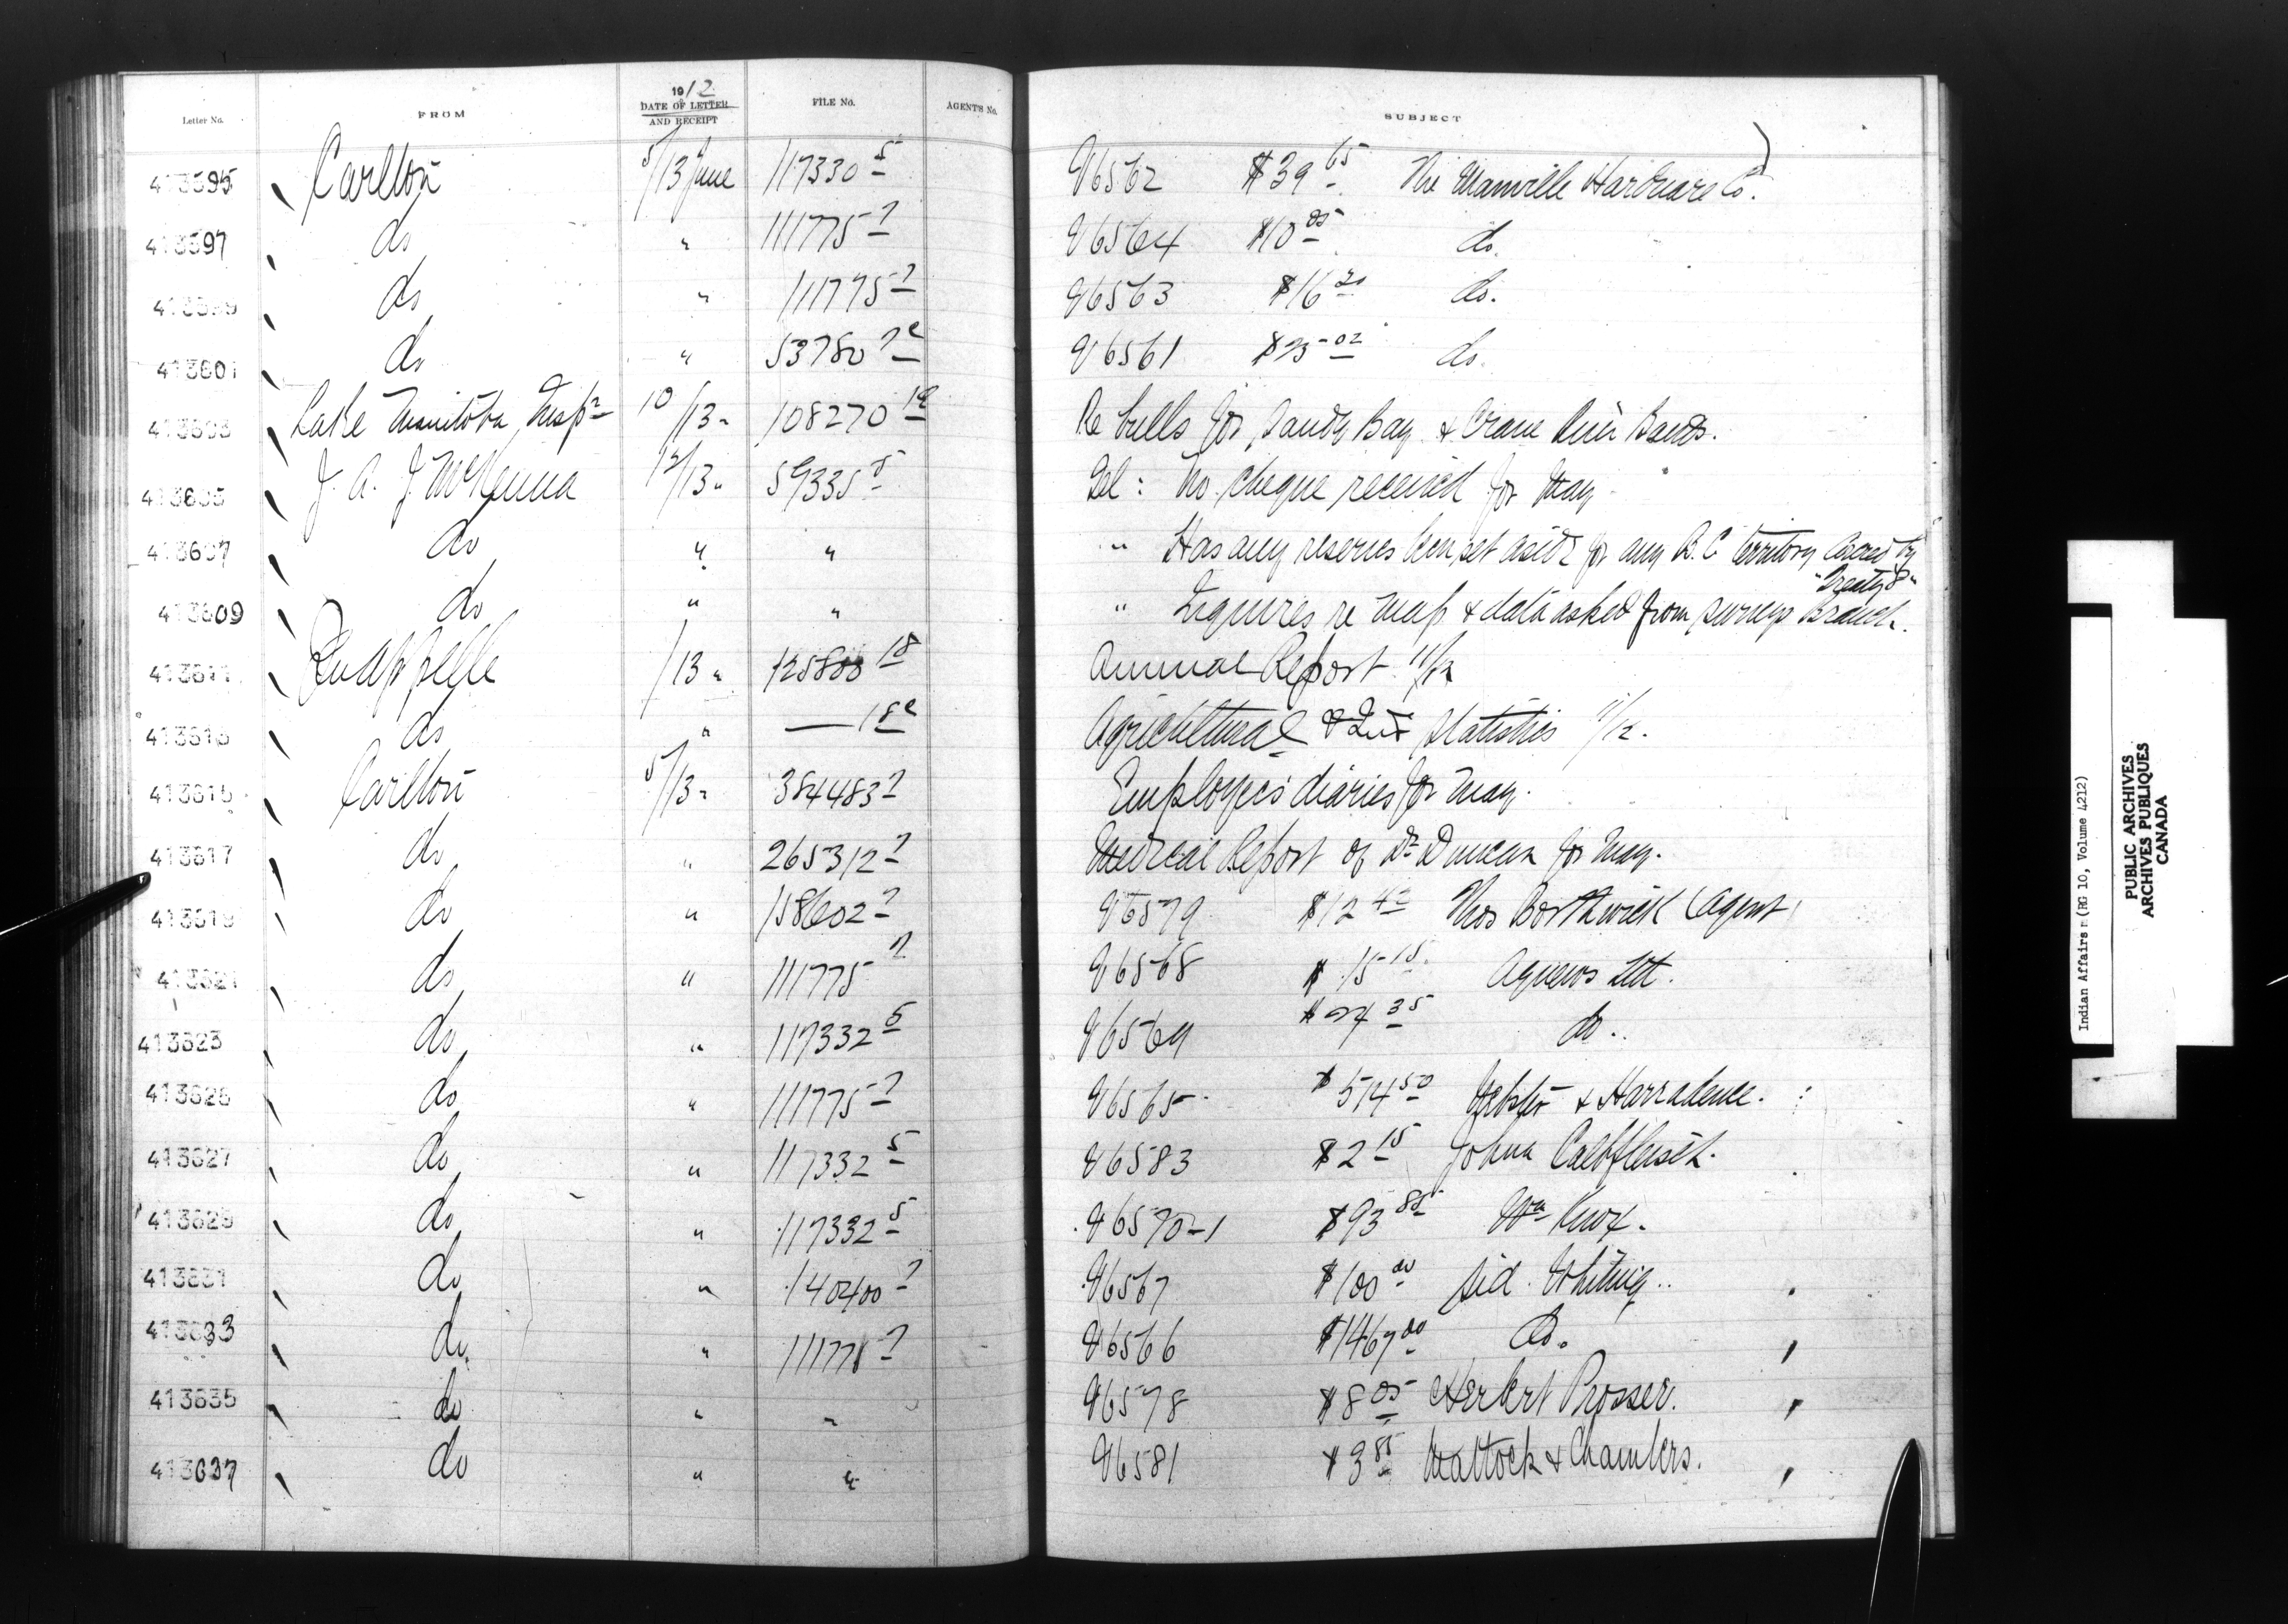 Letter No. FROM 1912 DATE OF LETTER AND RECEIPT FILE No. AGENT'S No. SUBJECT
413595 Carlton 5/13 June 117330 5 V6562 $39 65 The Manville Hardware Co.
413597 do " 111775 7 V6564 $10 05 do.
do " 111775 7 V6563 $16 20 do.
413601 do " 53780 V6561 do.
413603 Lake Manitoba Inspr 10/13 " 108270 Re bulls for Sandy Bay & Crane River Bands.
413605 J. A. J. McKenna 12/13 " 59335 5 Tel: No cheque received for May
413607 do " " " Has any reserves been set aside for any B.C. territory covered by "Treaty 8"
413609 do " " " Inquires re map & data asked from surveys Branch.
413611 Qu'appelle /13 " 18 Annual Report 11/12
do " — 18 Agricultural & Ind Statistics 11/12.
413615 Carlton 5/13 " 384483 7 Employees diaries for May.
413617 do " 265312 7 Medical Report of Dr Duncan for May.
413619 do " 158602 7 V6579 $12 Thos Borthwick (Agent)
413621 do " 111775 7 V6568 $15 15 Agnews Ltd.
413623 do " 117332 5 V6569 35 do.
do " 111775 7 V6565 $514 50 & Harradence.
413627 do " 117332 5 V6583 $2 15 John Calbfleisch.
413629 do " 117332 5 V6570-1 $93 85 Wm Knox.
413631 do " 140400 7 V6567 $100 00 Sid. Whiting.
413633 do. " 7 V6566 $1467 00 do.
413635 do " " V6578 $8 05 Herbert Prosser.
413637 do " " V6581 $3 85 Mattock & Chambers.
Indian Affairs (RG 10, Volume 4212)
PUBLIC ARCHIVES
ARCHIVES PUBLIQUES
CANADA